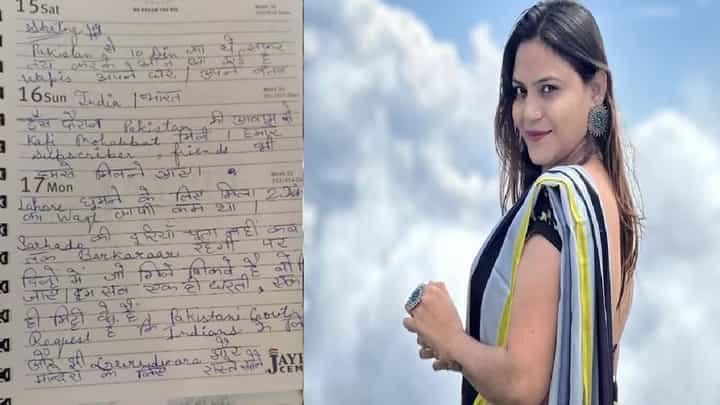 15 Sat
Pakistan से 10 Din का ये सफर
तय करके आज आ रहे है
वापिस अपने घर / अपने वतन
16 Sun India / भारत
इस दौरान Pakistan की आवाम से
Kafi Mohabbat मिली । हमारे
subscriber, friends भी
हमसे मिलने आए ।
17 Mon
Lahore घुमने के लिए मिला 2 Din
का Waqt काफी कम था ।
Sarhado की दूरियाँ पता नहीं कब
तक Barkaraar रहेगी पर
दिलों में जो गिले शिकवे है वो मिट
जाए । हम सब एक ही धरती, एक
ही मिट्टी के है ।
Request है कि Pakistani Govt.
Indians के लिए
और भी Gurudwara और
मन्दिर के लिए रास्ते खोले
JAYP
CEM